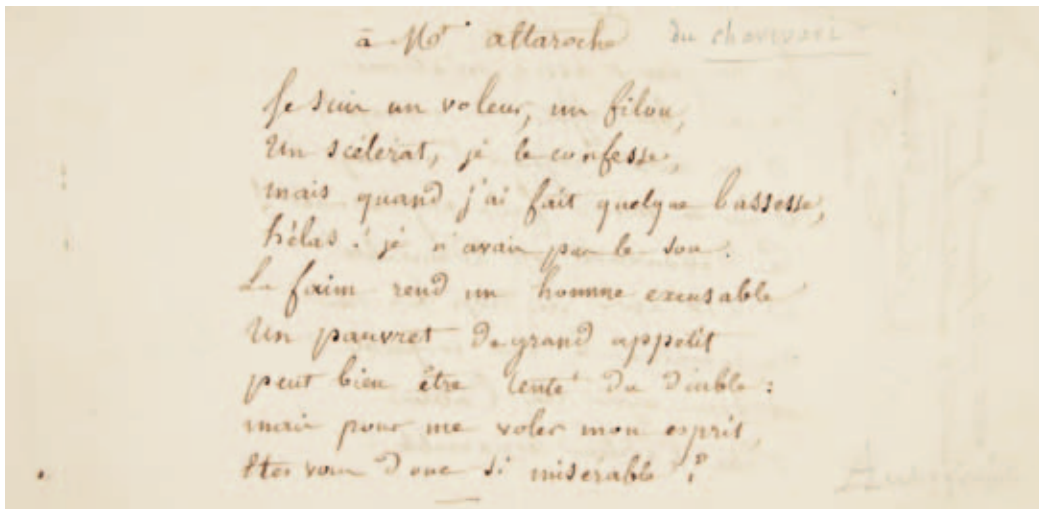 à Mr altaroche du charivari
Je suis un voleur, un filou,
Un scélérat, je le confesse,
mais quand j'ai fait quelque bassesse,
hélas ! je n'avais pas le sou.
La faim rend un homme excusable
Un pauvret de grand appetit
peut bien être tenté du diable :
mais pour me voler mon esprit,
êtes vous donc si misérable ?